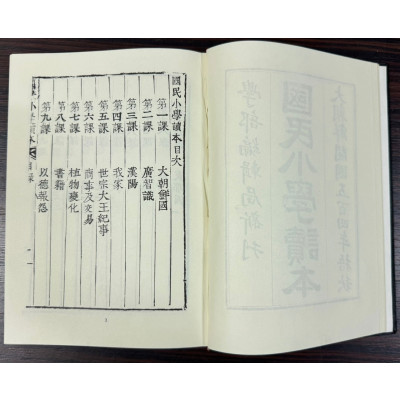 國民小學讀本目次
第一課 大朝鮮國
第二課 廣智識
第三課 漢陽
第四課 我家
第五課 世宗大王紀事
第六課 商事及交易
第七課 植物變化
第八課 書籍
第九課 以德報怨
小學讀本
一
國民小學讀本
學部編輯局新刊